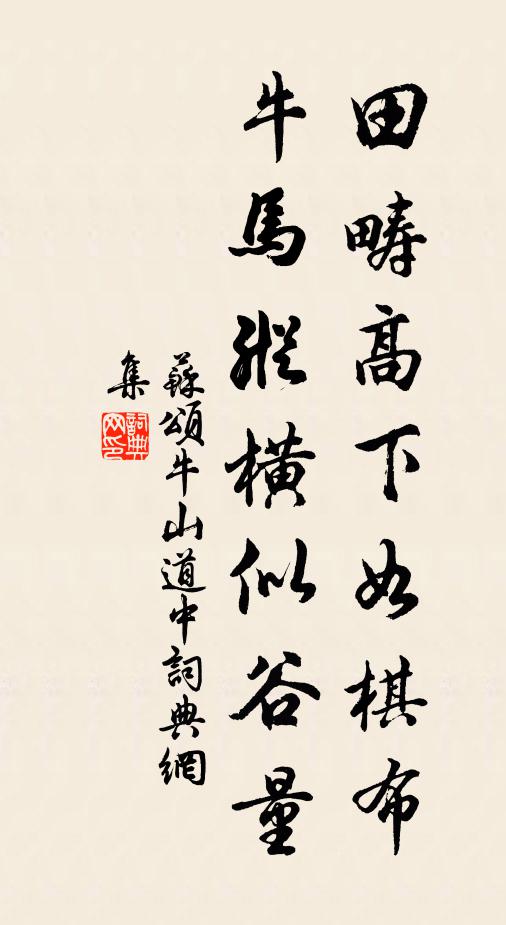 田疇高下如棋布
牛馬縱橫似谷量
蘇頌牛山道中詞典網
集
詞典網印